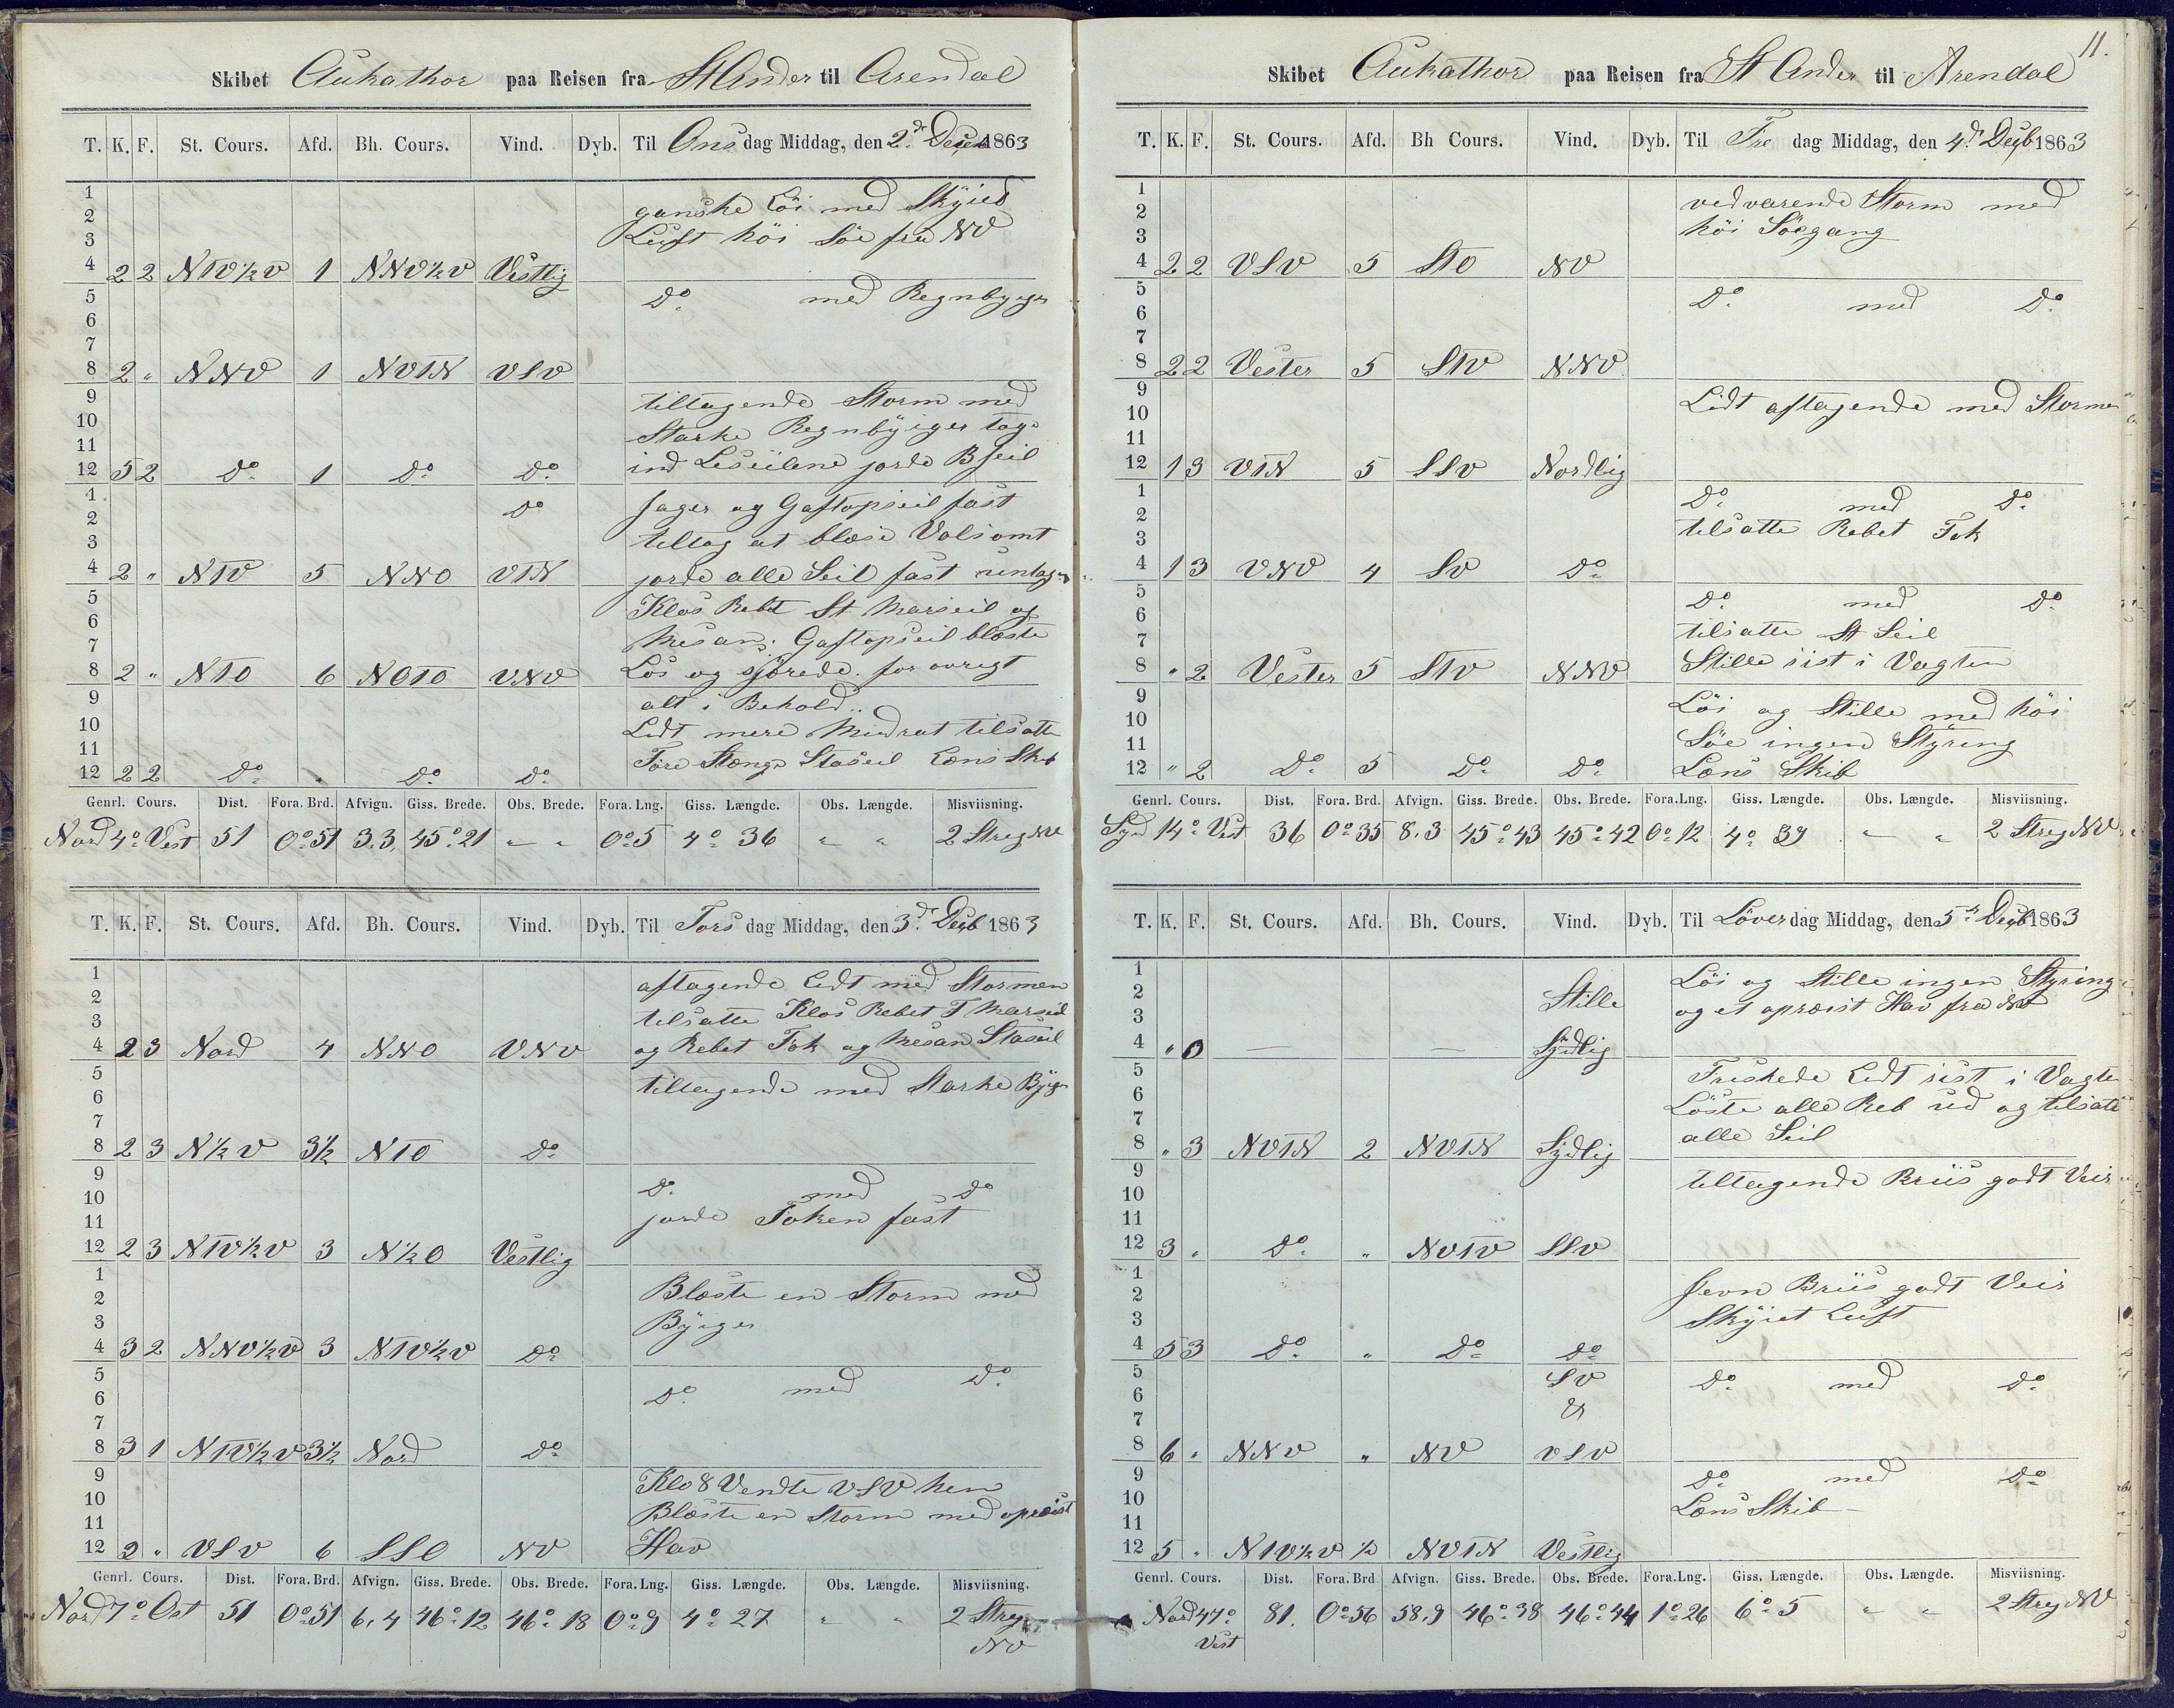 Skibet Aukathor paa Reisen fra St Ander til Arendal
T. K. F. St. Cours. Afd. Bh. Cours. Vind. Dyb. Til Onsdag Middag, den 2dr Decb 1863
1 ganske Löi med Skyied
2 Luft höi Söe fra NV
3
4 2 2 NTV½V 1 NNV½V Vestlig
5 Do med Regnbyger
6
7
8 2 " NNV 1 NVTN VSV
9 tiltagende Storm med
10 Starke Regnbyiger tog
11 ind Leseilene jorde B Seil
12 5 2 Do 1 Do Do
1 Do Jager og Gaftopseil fast
2 tiltog at blæse Volsomt
3
4 2 " NTV 5 NNO VTN jorde alle Seil fast untag
5 Klos Rebet St Marseil og
6 Mesan: Gaftopseil blæste
7
8 2 " NTO 6 NOTO VNV Lös og sförede. for ovregt
9 alt i Behold..
10 Lidt mere Modrat tilsatte
11 Före Stænge Staseil Læns Skib
12 2 2 Do " Do Do
Genrl. Cours. Dist. Fora. Brd. Afvign. Giss. Brede. Obs. Brede. Fora. Lng. Giss. Længde. Obs. Længde. Misviisning.
Nord 4o Vest 51 0o51 3.3. 45o21 " " 0o5 4o 36 " " 2 Streg NV
T. K. F. St. Cours. Afd. Bh. Cours. Vind. Dyb. Til Torsdag Middag, den 3dr Decb 1863
1 aftagende Lidt med Stormen
2 tilsatte Klos Rebet F Marseil
3
4 2 3 Nord 4 NNO VNV og Rebet Fok og Mesan Staseil
5 tiltagende med Starke Byger
6
7
8 2 3 N½V 3½ NTO Do
9 Do med Do
10 jorde Foken fast
11
12 2 3 NTV½V 3 N½O Vestlig
1 Blæste en Storm med
2 Byiger
3
4 3 2 NNV½V 3 NTV½V Do
5 Do med Do
6
7
8 3 1 NTV½V 3½ Nord Do
9 Klo 8 Vendte VSV hen
10 Blæste en Storm med opreist
11
12 2 " VSV 6 SSO NV Hav
Genrl. Cours. Dist. Fora. Brd. Afvign. Giss. Brede. Obs. Brede. Fora. Lng. Giss. Længde. Obs. Længde. Misviisning.
Nord 7o Ost 51 0o51 6,4 46o12 46o18 0o9 4o 27 " " 2 Streg
NV
11.
Skibet Aukathor paa Reisen fra St Ander til Arendal
T. K. F. St. Cours. Afd. Bh Cours. Vind. Dyb. Til Fredag Middag, den 4dr Decb 1863
1 vedvarende Storm med
2 höi Söegang
3
4 2 2 VSV 5 STO NV
5 Do med Do
6
7
8 2 2 Vester 5 STV NNV
9 Lidt aftagende med Stormen
10
11
12 1 3 VTN 5 SSV Nordlig
1 Do med Do
2 tilsatte Rebet Fok
3
4 1 3 VNV 4 SV Do
5 Do med Do
6 tilsatte St Seil
7
8 " 2 Vester 5 STV NNV Stille sist i Vagten
9 Löi og Stille med höi
10 Söe ingen Styring
11
12 " 2 Do 5 Do Do Læns Skib
Genrl. Cours. Dist. Fora. Brd. Afvign. Giss. Brede. Obs. Brede. Fora. Lng. Giss. Længde. Obs. Længde. Misviisning.
Syd 14o Vest 36 0o35 8,3 45o43 45o42 0o12 4o 39 " " 2 Streg NV
T. K. F. St. Cours. Afd. Bh. Cours. Vind. Dyb. Til Löverdag Middag, den 5dr Decb 1863
1 Löi og Stille ingen Styring
2 Stille og et opreist Hav fra NV
3
4 " 0 — — Sydlig
5 Friskede Lidt sist i Vagten
6 Löste alle Reb ud og tilsatte
7
8 " 3 NVTN 2 NVTN Sydlig alle Seil
9 tiltagende Briis godt Veir
10
11
12 3 " Do " NVTV SSV
1 Jevn Briis godt Veir
2 Skyiet Luft
3
4 5 3 Do " Do Do
5 SV Do med Do
6 &
7
8 6 " NNV " NV VSV
9 Do med Do
10 Læns Skib
11
12 5 " NTV½V ½ NVTN Vestlig
Genrl. Cours. Dist. Fora. Brd Afvign. Giss. Brede. Obs. Brede. Fora. Lng. Giss. Længde. Obs. Længde. Misviisning.
Nord 47o 81. 0o56 58,9 46o38 46o44 1o26 6o5 " " 2 Streg NV
Vest